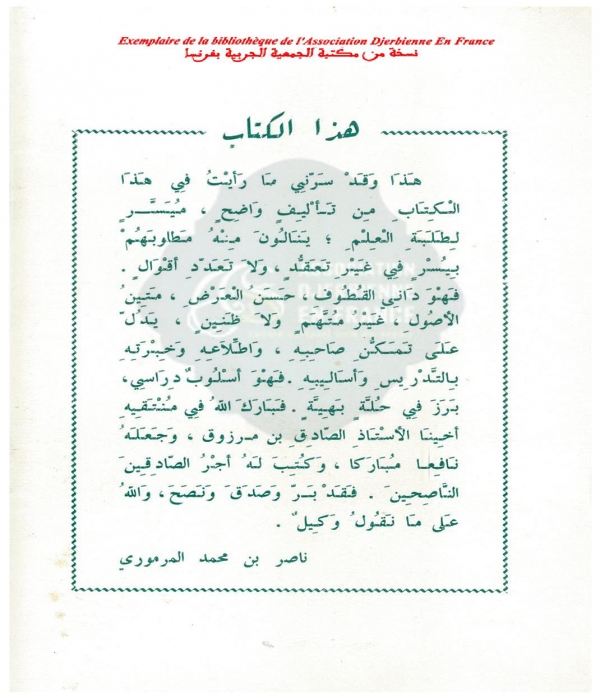 Exemplaire de la bibliothèque de l'Association Djerbienne En France
نسخة من مكتبة الجمعية الجربية بفرنسا
هذا الكتاب
هَذَا وَقَدْ سَرَّنِي مَا رَأَيْتُ فِي هَذَا
الْكِتَابِ مِن تَأْلِيفٍ وَاضِحٍ ، مُيَسَّرٍ
لِطَلَبَةِ الْعِلْمِ ؛ يَنَالُونَ مِنْهُ مَطْلُوبَهُمْ
بِيُسْرٍ فِي غَيْرِ تَعَقُّدٍ ، وَلَا تَعَدُّدِ أَقْوَال .
فَهُوَ دَانِي الْقُطُوفِ ، حَسَنُ الْعَرْضِ ، مَتِينُ
الْأُصُولِ ، غَيْرُ مُتَّهَمٍ وَلَا ظَنِينٍ ، يَدُلُّ
عَلَى تَمَكُّنِ صَاحِبِهِ ، وَاطِّلَاعِهِ وَخِبْرَتِهِ
بِالتَّدْرِيسِ وَأَسَالِيبِهِ . فَهُوَ أُسْلُوبٌ دِرَاسِي،
بَرَزَ فِي حُلَّةٍ بَهِيَّةٍ . فَبَارَكَ اللهُ فِي مُنْتَقِيهِ
أَخِينَا الْأُسْتَاذِ الصَّادِقِ بن مَرزوق ، وَجَعَلَهُ
نَافِعًا مُبَارَكًا ، وَكُتِبَ لَهُ أَجْرُ الصَّادِقِينَ
النَّاصِحِينَ . فَقَدْ بَرَّ وَصَدَقَ وَنَصَحَ ، وَاللهُ
عَلَى مَا نَقُولُ وَكِيلٌ .
ناصر بن محمد المرموري
ASSOCIATION
DJERBIENNE
EN FRANCE